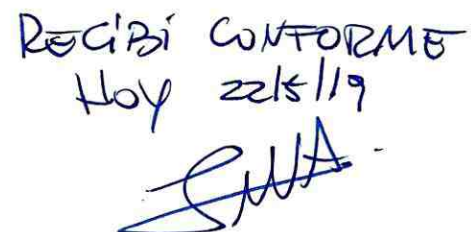 RECIBI CONFORME
HOY 22/5/19